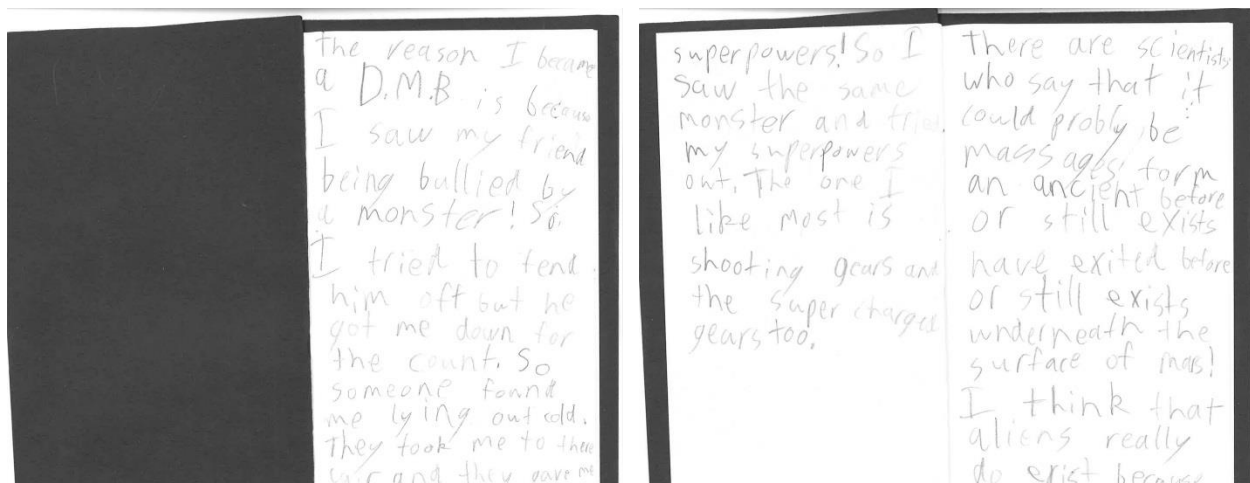 the reason I became
a D.M.B is because
I saw my friend
being bullied by
a monster! So
I tried to fend
him off but he
got me down for
the count. So
someone found
me lying out cold.
They took me to there
lair and they gave me
superpowers! So I
saw the same
monster and tried
my superpowers
out. The one I
like most is
shooting gears and
the super charged
gears too.
There are scientists
who say that it
could probly be
massages form
an ancient before
or still exists
have exited before
or still exists
underneath the
surface of mars!
I think that
aliens really
do exist because